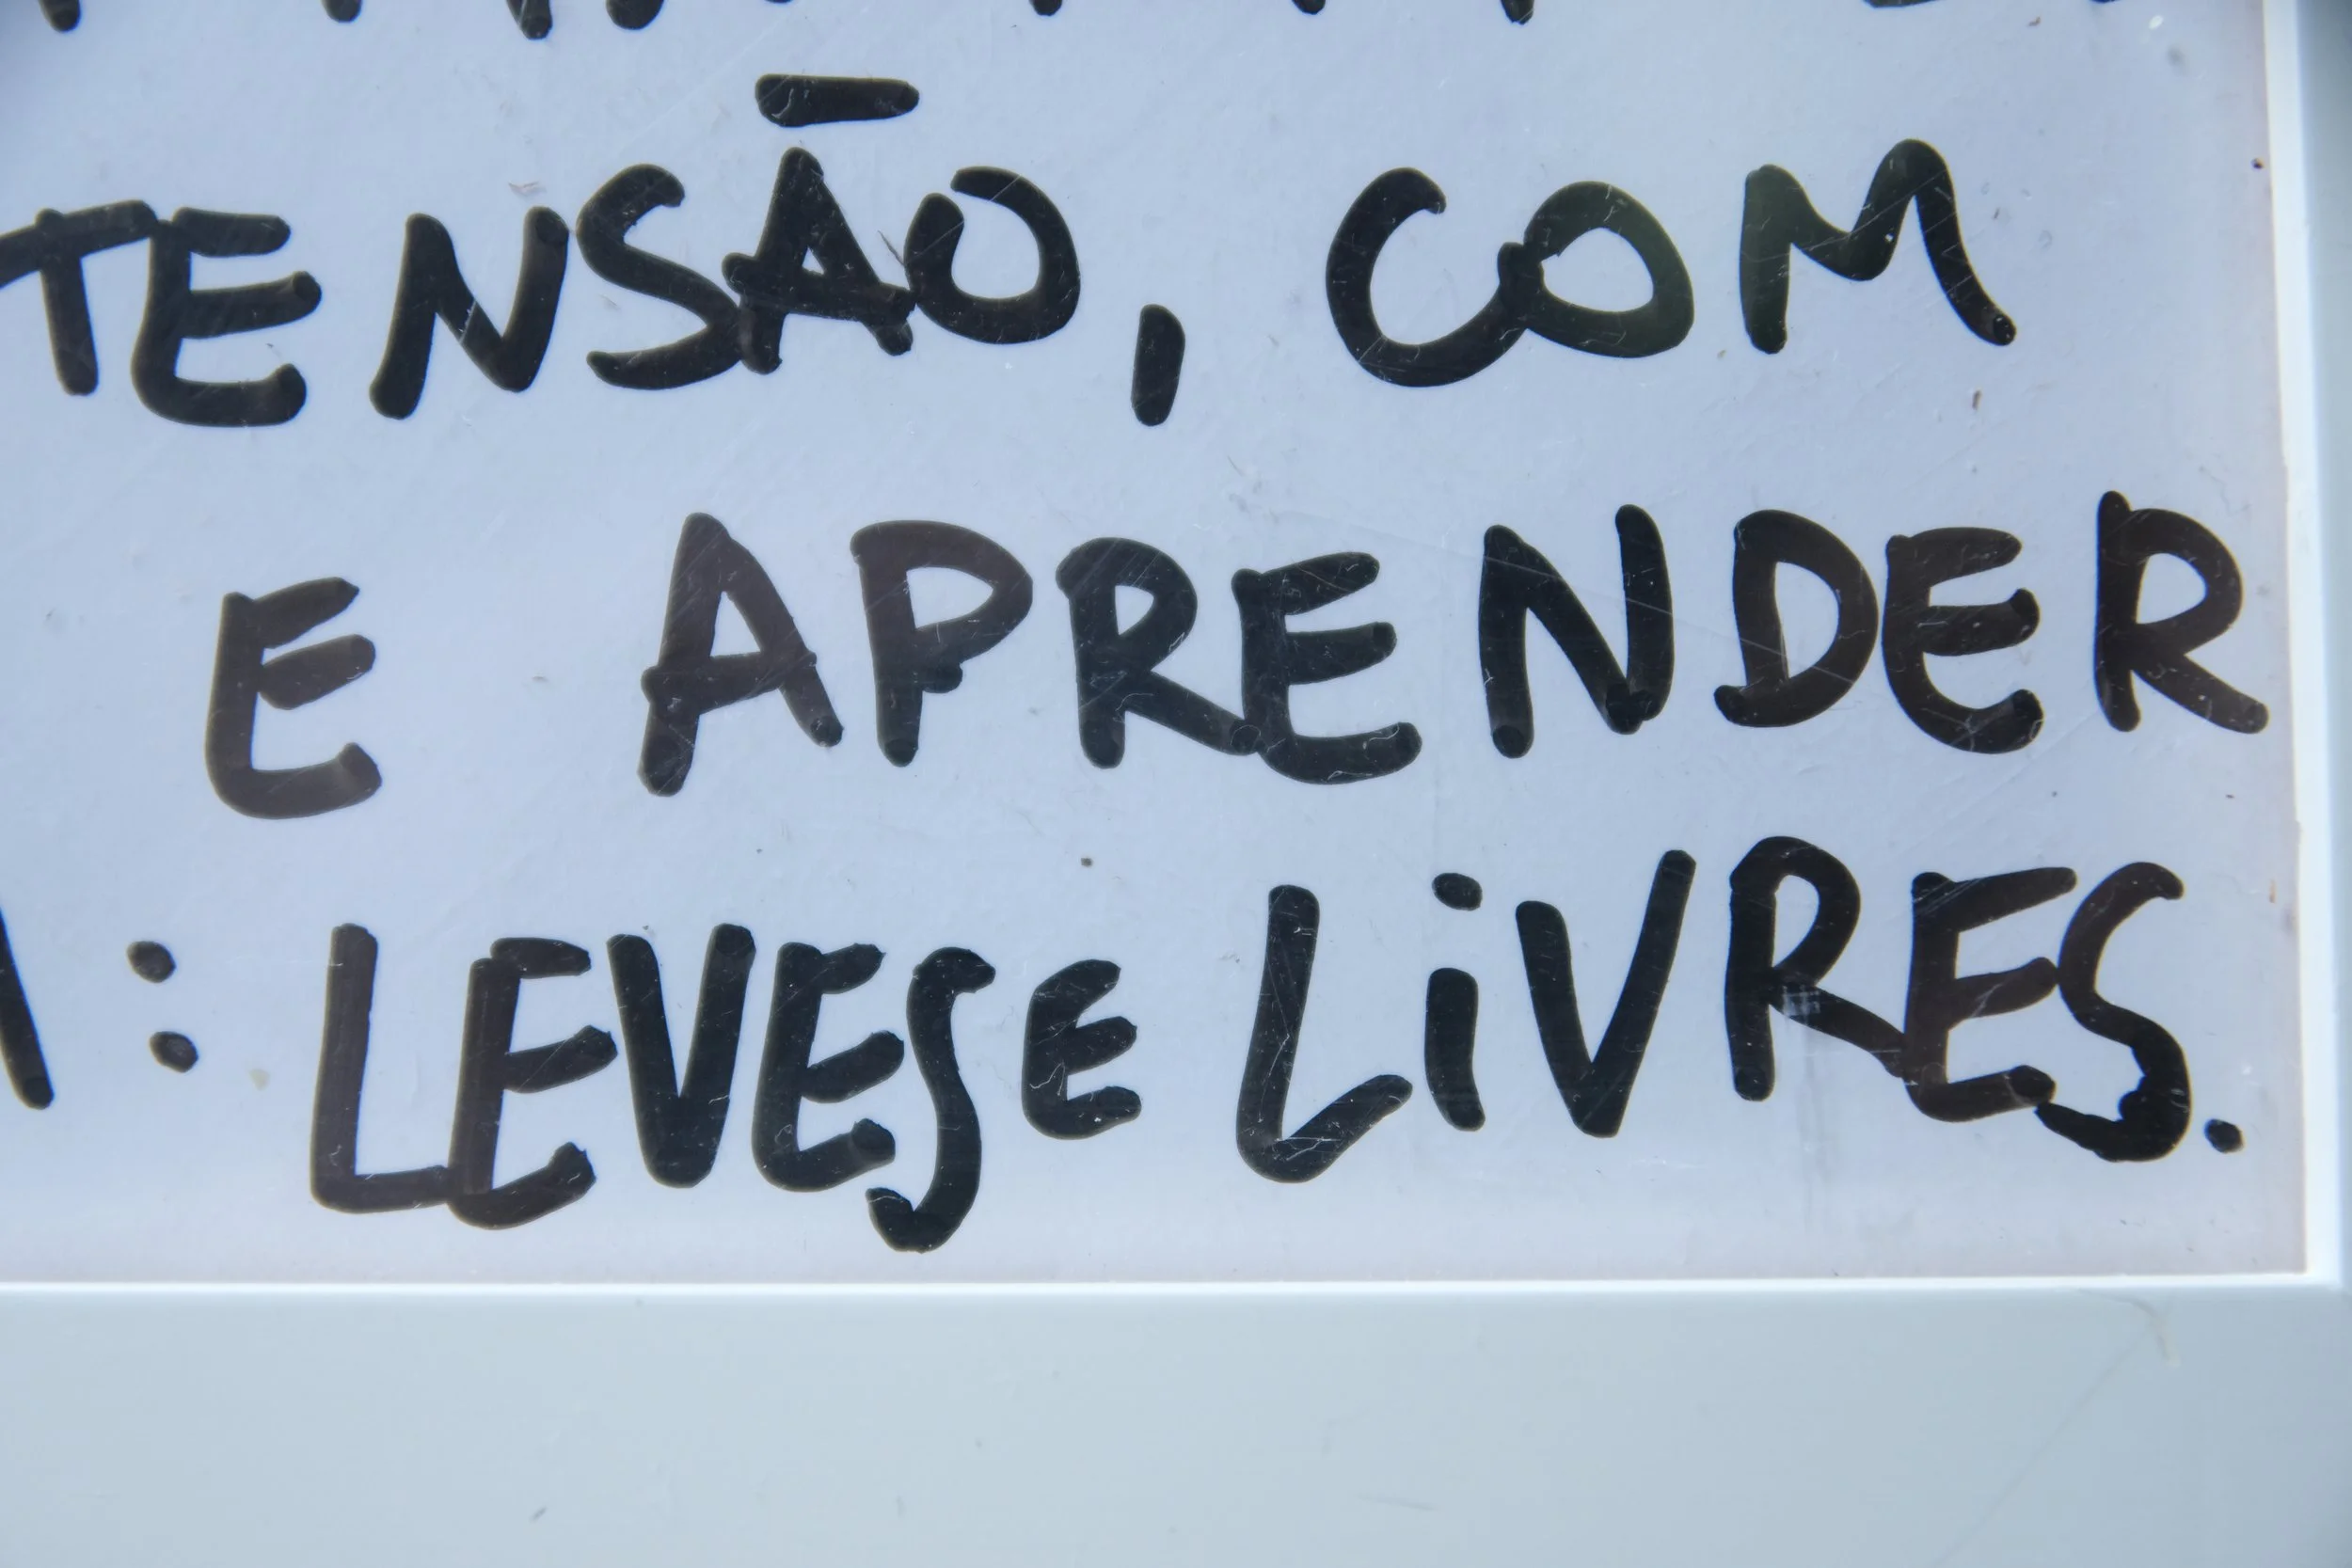 TENSÃO, COM
E APRENDER
: LEVES E LiVRES.